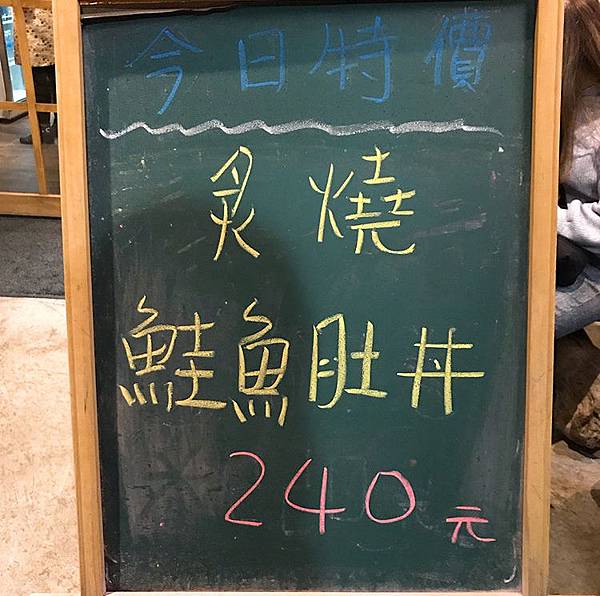 今日特價
炙燒
鮭魚肚丼
240元